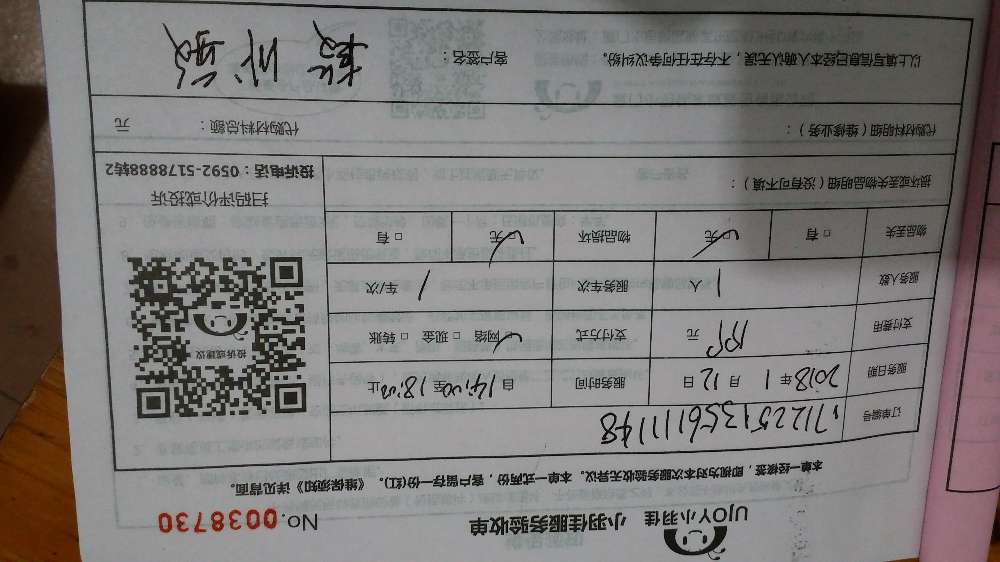 UJOY小羽佳 小羽佳服务验收单 No. 0038730
本单一经核签，即视为对本次服务验收无异议。本单一式两份，客户留存一份(红)。《维保须知》详见背面。
订单编号 171225135611148
服务日期 2018年1月12日 服务时间 自14:00至18:00止
支付费用 元 支付方式 网络 □现金 □转账
服务人数 1人 服务车次 1车/次
投诉或建议
物品丢失 □有 □无 物品损坏 □无 □有
扫码评价或投诉
投诉电话：0592-5178888转2
损坏或丢失物品明细（没有可不填）：
代购材料明细（维修业务）： 代购材料总额： 元
以上填写信息已经本人确认无误，不存在任何争议纠纷。 客户签名：